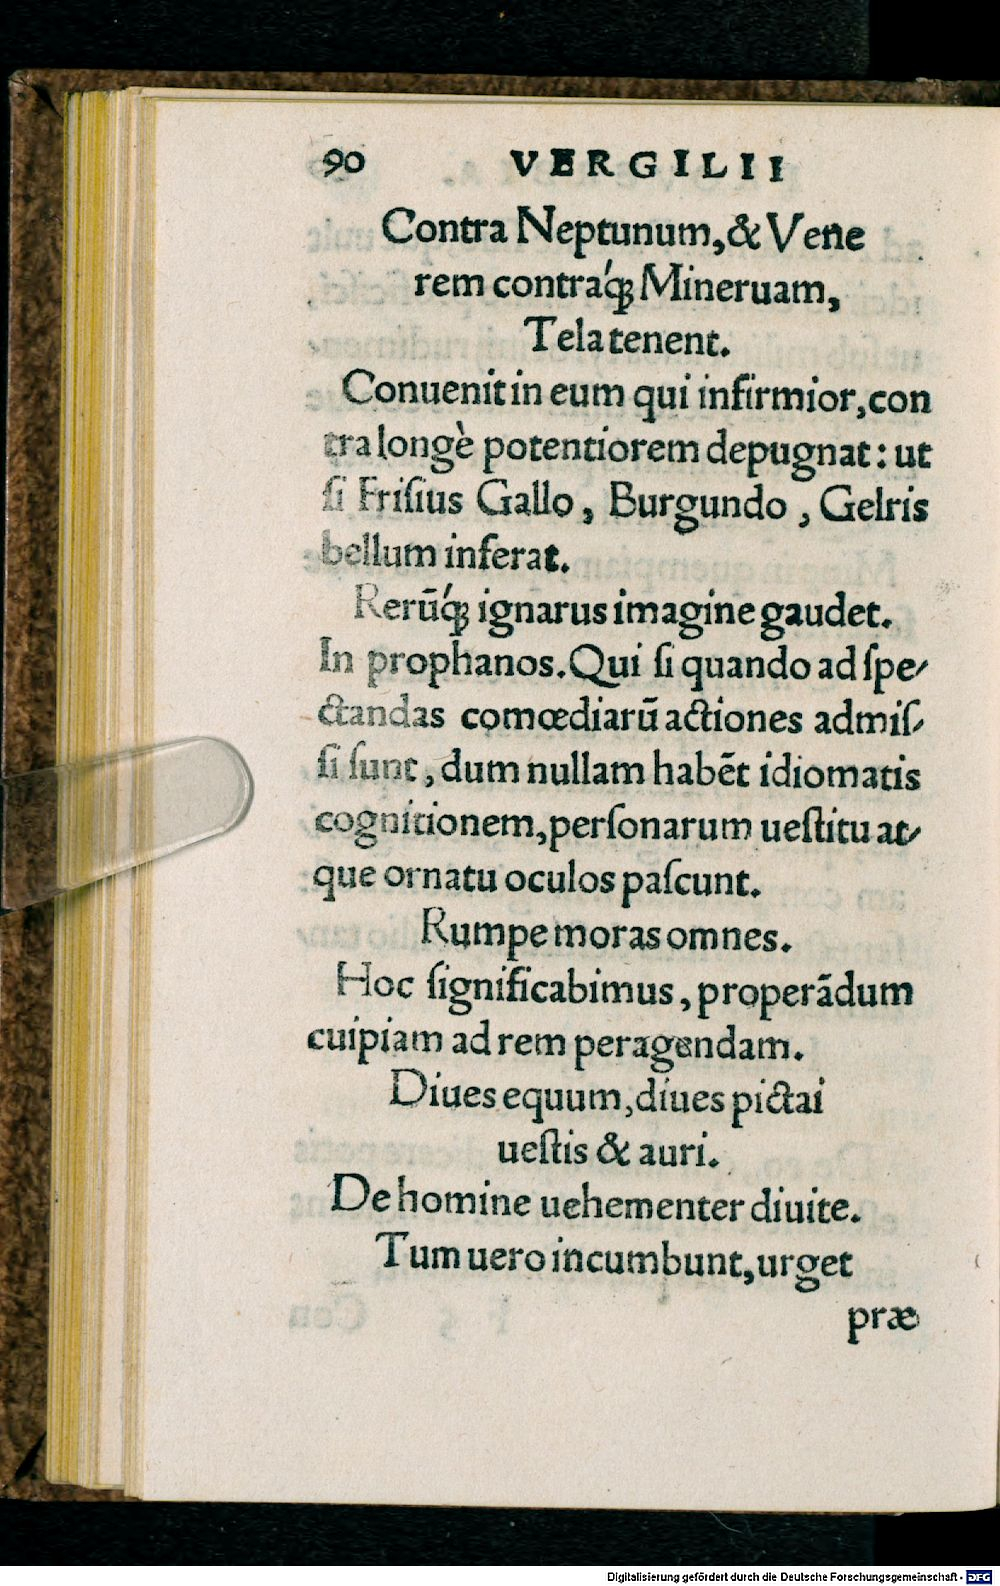 90 VERGILII
Contra Neptunum, & Vene
rem contraq́ꝫ Mineruam,
Tela tenent.
Conuenit in eum qui infirmior, con
tra longè potentiorem depugnat: ut
ſi Friſius Gallo, Burgundo, Gelris
bellum inferat.
Rerūq́ꝫ ignarus imagine gaudet.
In prophanos. Qui ſi quando ad ſpe⸗
ctandas comœdiarū actiones admiſ⸗
ſi ſunt, dum nullam habēt idiomatis
cognitionem, perſonarum ueſtitu at⸗
que ornatu oculos paſcunt.
Rumpe moras omnes.
Hoc ſignificabimus, properādum
cuipiam ad rem peragendam.
Diues equum, diues pictai
ueſtis & auri.
De homine uehementer diuite.
Tum uero incumbunt, urget
præ
Digitalisierung gefördert durch die Deutsche Forschungsgemeinschaft - DFG